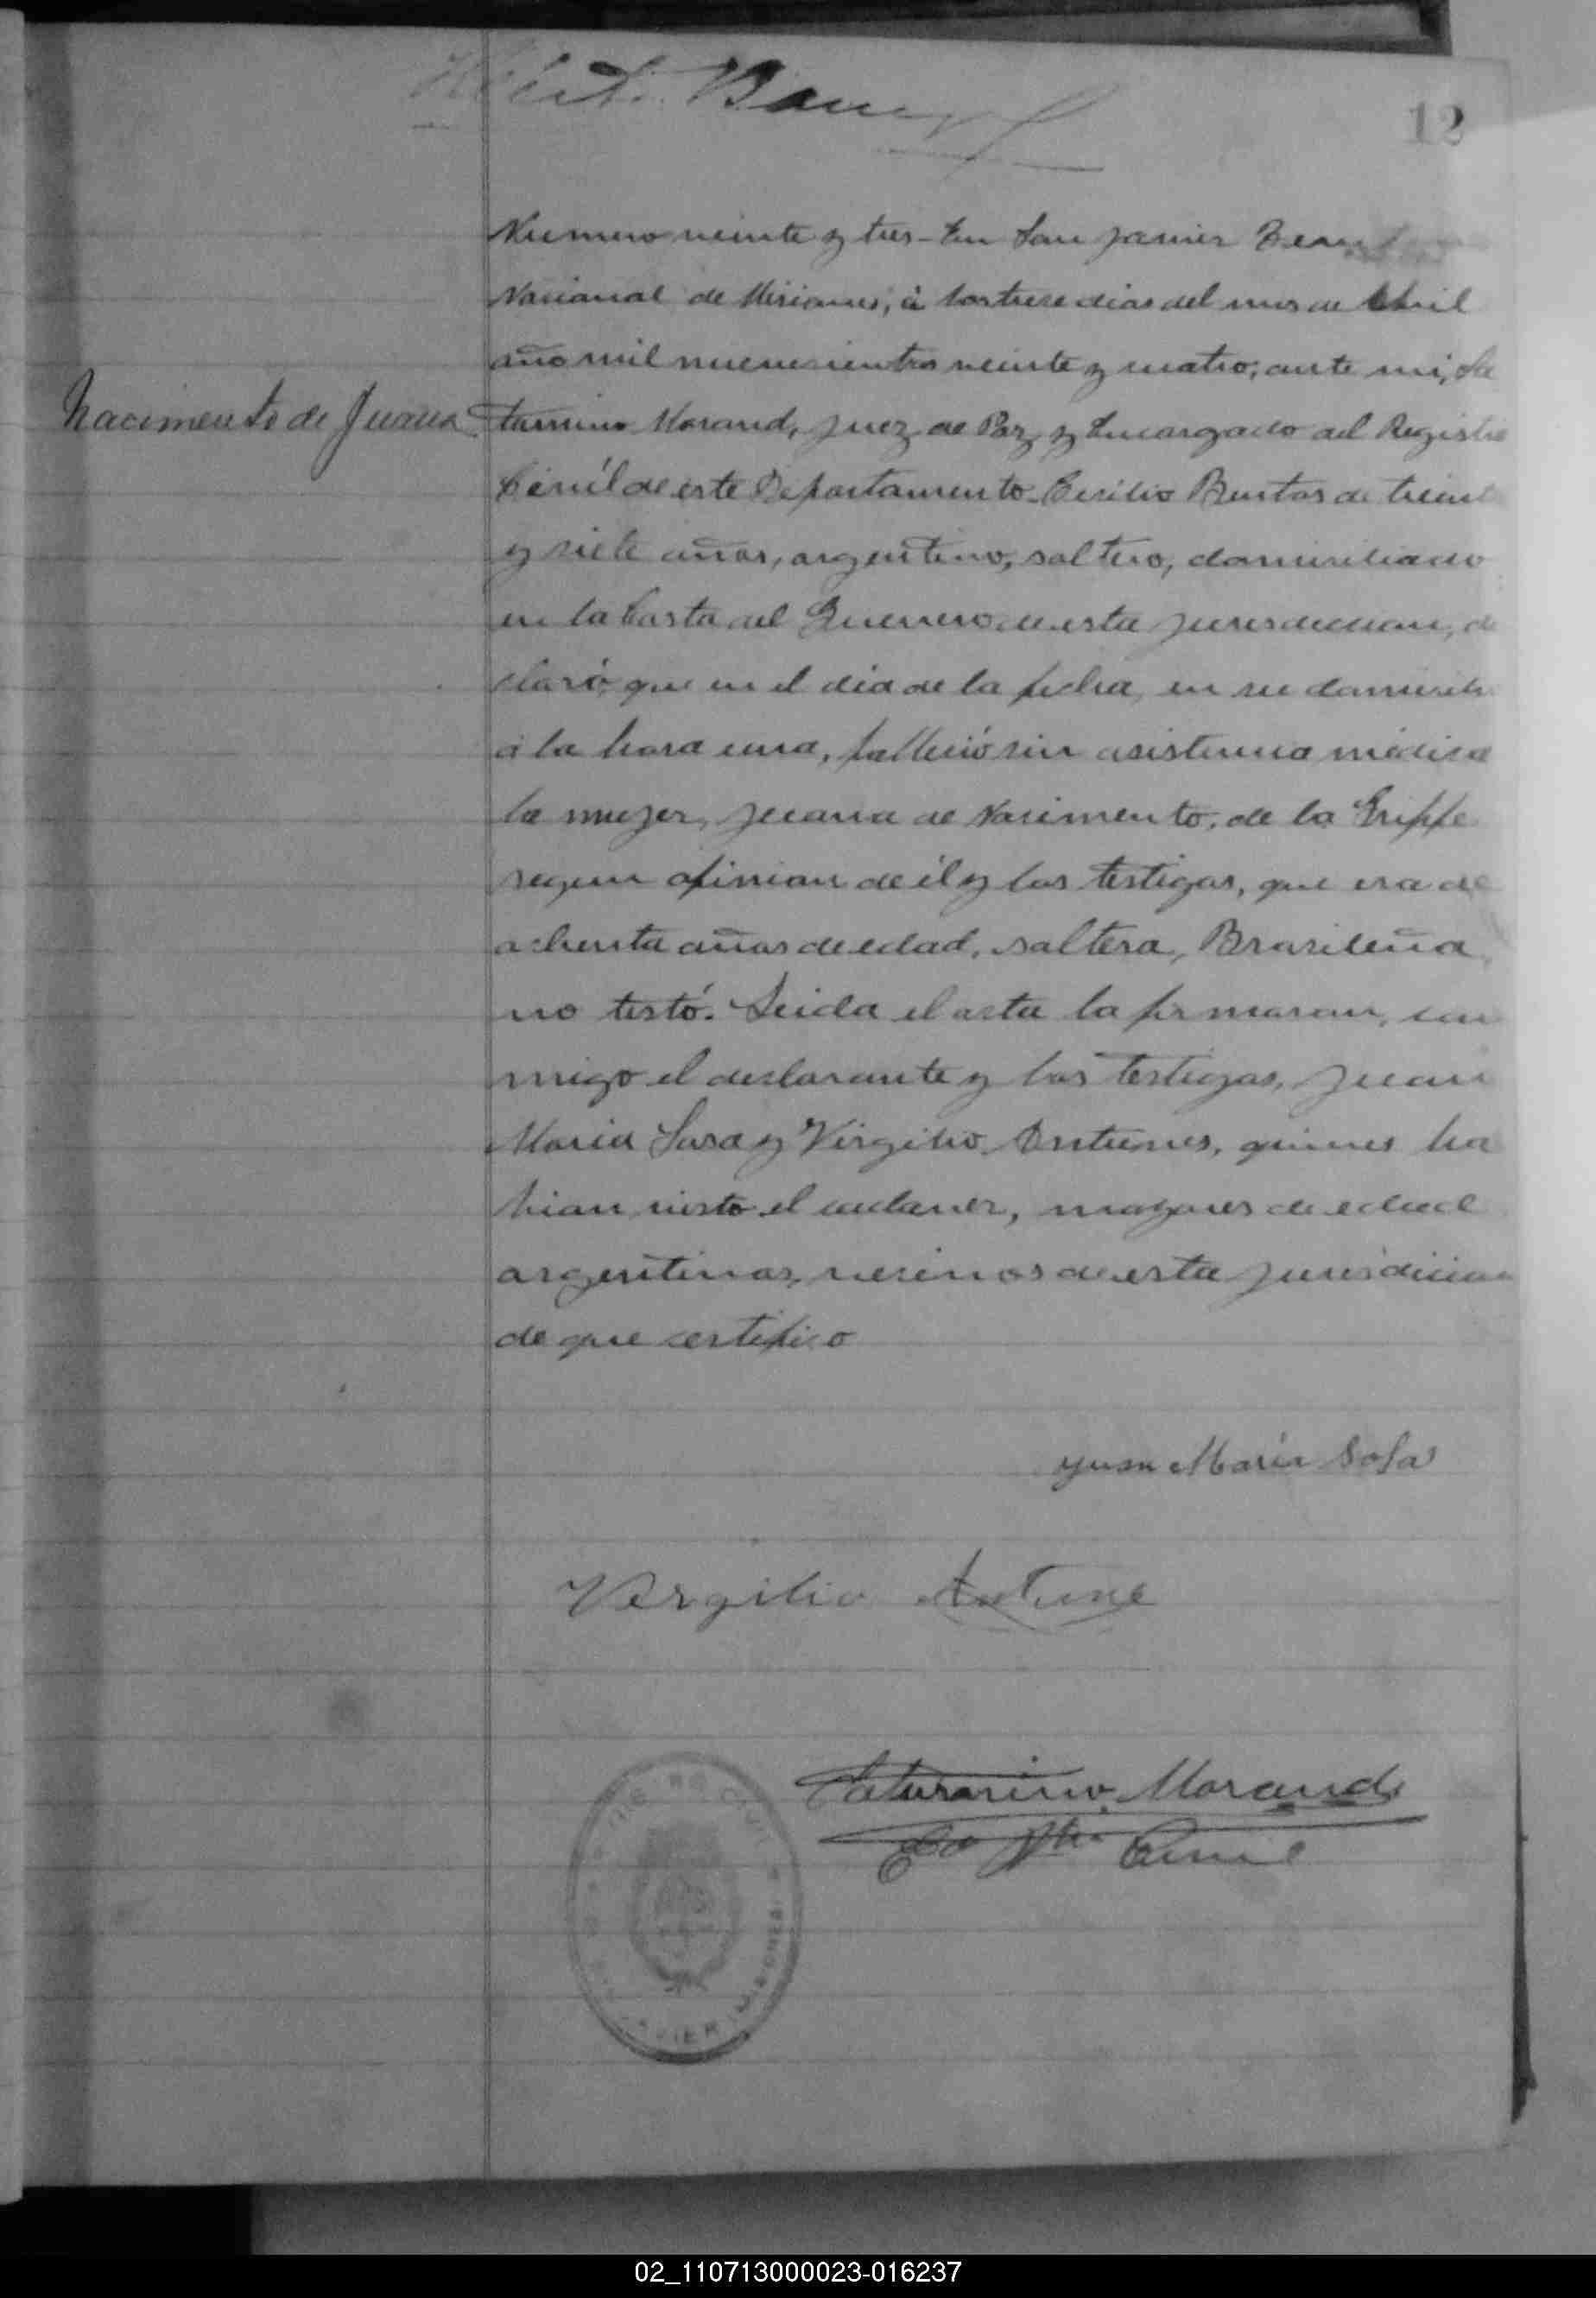 12
Numero veinte y tres - En San Javier
Nacional de Misiones, á los trece dias del mes de Abril
año mil nuevecientos veinte y cuatro; ante mi, Sa
Nacimento de Juana
turnino Morand, Juez de Paz y Encargado del Registro
Civil de este Departamento Cecilio Bentos de treinta
y siete años, argentino, soltero, domiciliado
en la Costa del Guerrero de esta jurisdiccion, de
claró, que en el dia de la fecha, en su domicilio
á la hora una, falleció sin asistencia médica
la mujer, Juana de Nacimento, de la Grippe
segun opinion de él y los testigos, que era de
ochenta años de edad, soltera, Brasileña,
no testó. Leida el acta la firmaron, con
migo el declarante y los testigos, Juan
Maria Sosa y Virgilio Antunes, quienes ha
bian visto el cadaver, mayores de edad
argentinos, vecinos de esta jurisdiccion
de que certifico
Juan María Sosa
Vergilio Antune
Saturnino Morand
02_110713000023-016237